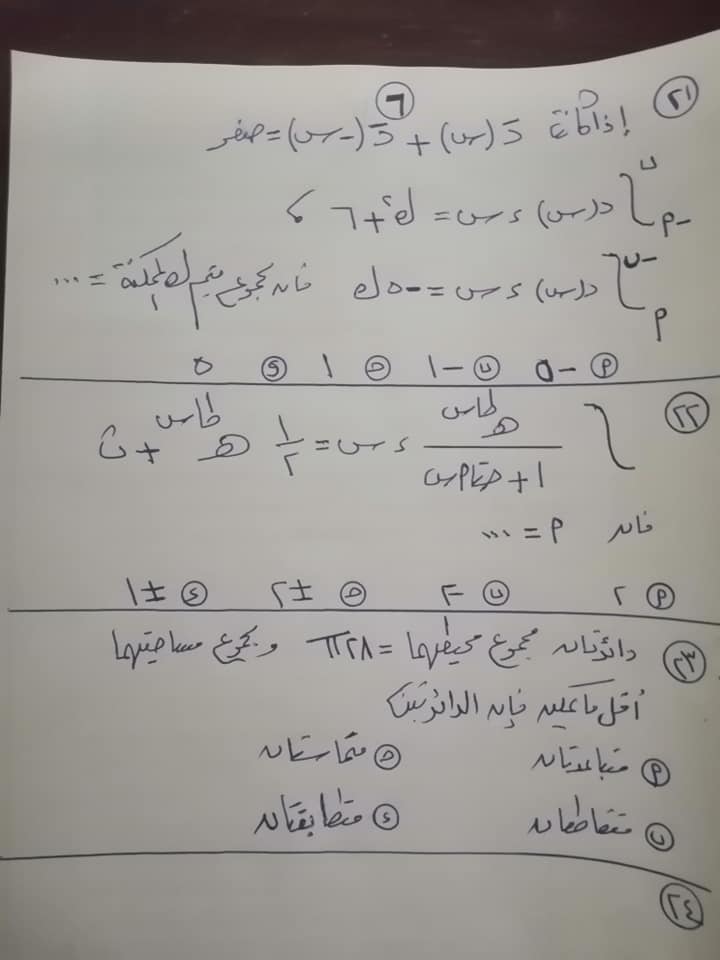 ٦
(٢١) إذا كانت دَ(س) + دَ(-س) = صفر
∫ من -م إلى ب د(س) ءس = ك² + ٦ ،
∫ من م إلى -ب د(س) ءس = -٥ ك فإن مجموع قيم ك الممكنة = ...
(م) -٥ (ب) -١ (ح) ١ (ء) ٥
(٢٢) ∫ هـ^(طاس) / (١ + حتا م س) ءس = ١/٢ هـ^(طاس) + ث
فإن م = ...
(م) ٢ (ب) -٢ (ح) ±٢ (ء) ±١
(٢٣) دائرتان مجموع محيطيهما = ٢٨π ومجموع مساحتيهما
أقل ما يمكن فإن الدائرتين
(م) متباعدتان (ح) متماستان
(ب) متقاطعتان (ء) متطابقتان
(٢٤)